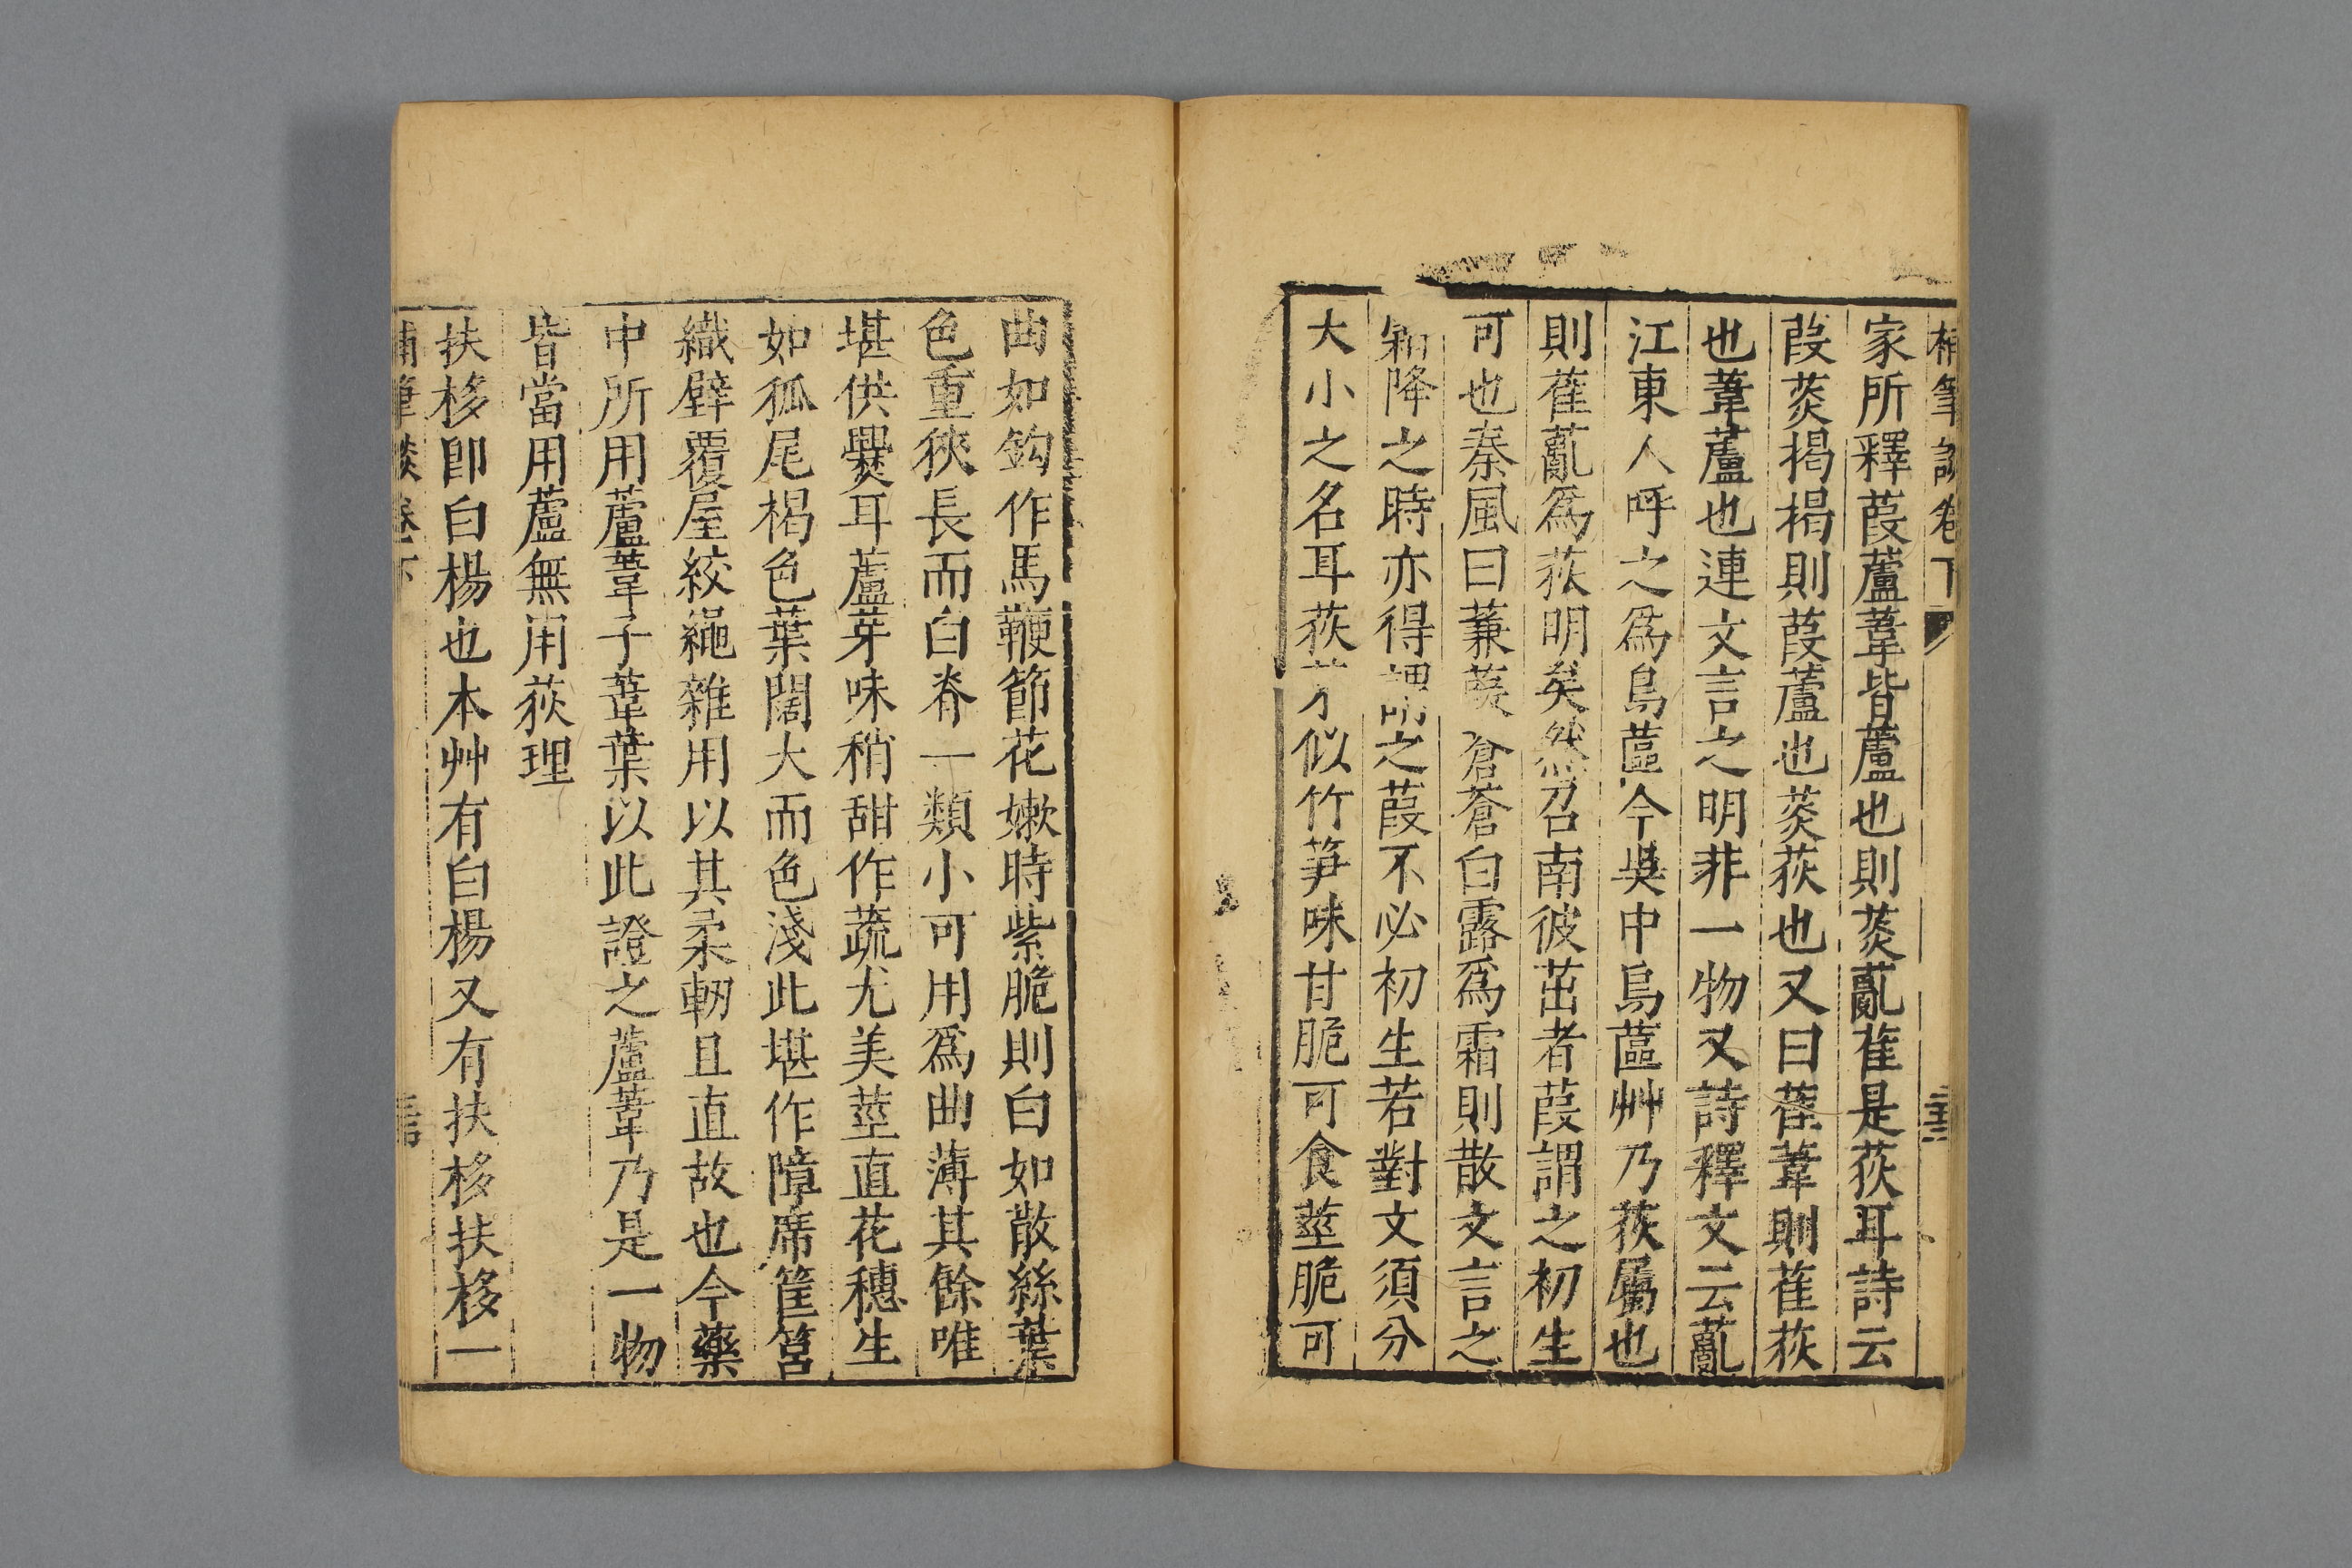 補筆談卷下
家所釋葭蘆葦皆蘆也則菼薍萑是荻耳詩云
葭菼揭揭則葭蘆也菼荻也又曰萑葦則萑荻
也葦蘆也連文言之明非一物又詩釋文云薍
江東人呼之爲烏蓲今吳中烏蓲艸乃荻屬也
則萑薍爲荻明矣然召南彼茁者葭謂之初生
可也秦風曰蒹葭蒼蒼白露爲霜則散文言之
霜降之時亦得謂之葭不必初生若對文須分
大小之名耳荻芽似竹笋味甘脆可食莖脆可
曲如鈎作馬鞭節花嫩時紫脆則白如散絲葉
色重狹長而白脊一類小可用爲曲薄其餘唯
堪供爨耳蘆芽味稍甜作蔬尤美莖直花穗生
如狐尾褐色葉闊大而色淺此堪作障席筐筥
織壁覆屋絞繩雜用以其柔韌且直故也今藥
中所用蘆葦子葦葉以此證之蘆葦乃是一物
皆當用蘆無用荻理
扶栘卽白楊也本艸有白楊又有扶栘扶栘一
補筆談卷下